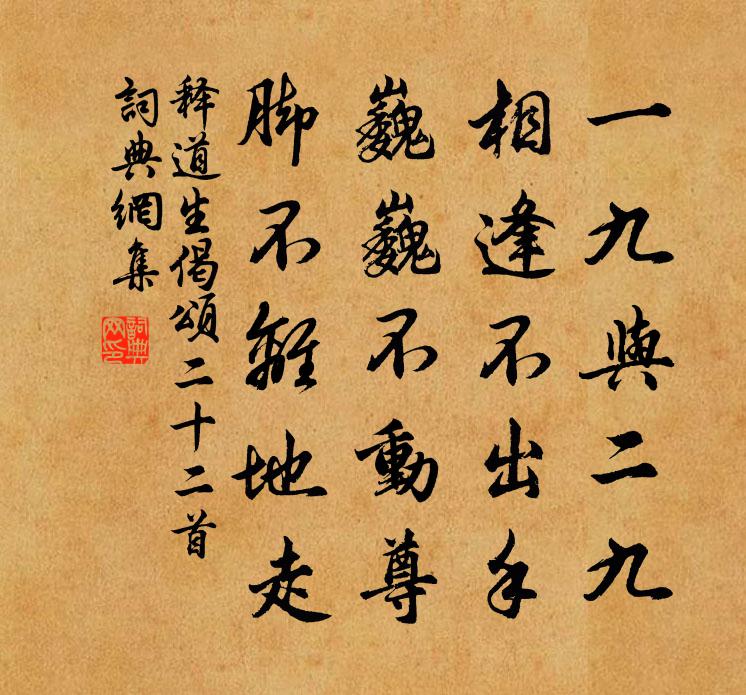 一九與二九
相逢不出手
巍巍不動尊
脚不離地走
释道生偈頌二十二首
詞典網集
詞典网印